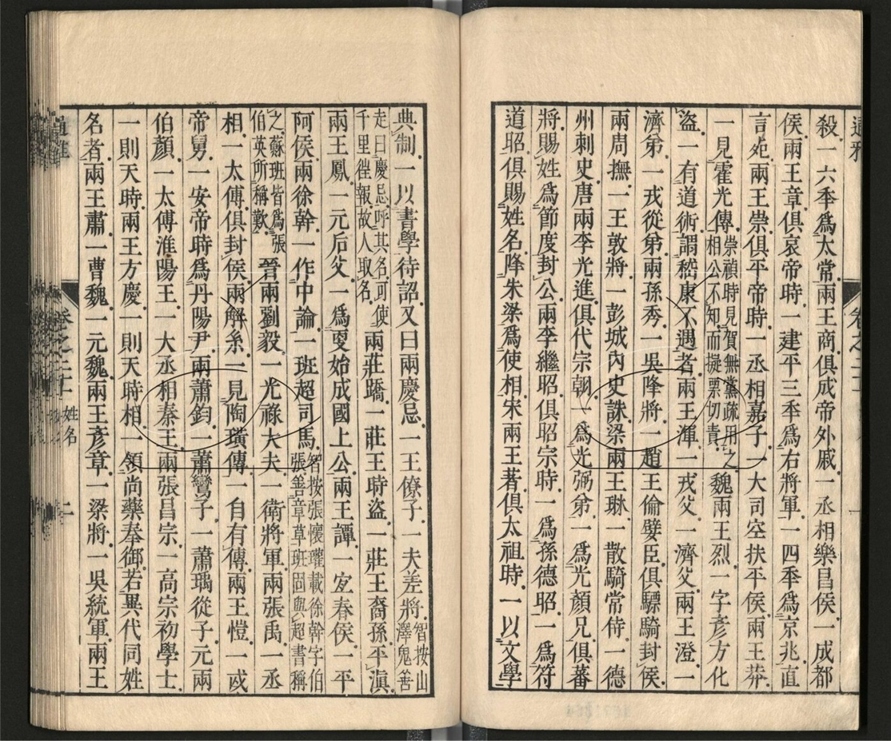 殺一六季爲太常兩王商俱成帝外戚一丞相樂昌侯一成都
侯兩王章俱哀帝時一建平三季爲右將軍一四季爲京兆直
言死兩王崇俱平帝時一丞相嘉子一大司空扶平侯兩王莽
一見霍光傳崇禎時見賀無黨疏用之相公不知而擬票切責魏兩王烈一字彥方化
盜一有道術謂嵇康不遇者兩王渾一戎父一濟父兩王澄一
濟弟一戎從弟兩孫秀一吳降將一趙王倫嬖臣俱驃騎封侯
兩周撫一王敦將一彭城內史誅梁兩王琳一散騎常侍一德
州刺史唐兩李光進俱代宗朝一爲光弼弟一爲光顏兄俱蕃
將賜姓爲節度封公兩李繼昭俱昭宗時一爲孫德昭一爲符
道昭俱賜姓名降朱梁爲使相宋兩王著俱太祖時一以文學
典制一以書學待詔又曰兩慶忌一王僚子一夫差將智按山澤鬼善
走曰慶忌呼其名可使千里徃報故人取名兩莊蹻一莊王時盜一莊王裔孫平滇
兩王鳳一元后父一爲更始成國上公兩王譚一宜春侯一平
阿侯兩徐幹一作中論一班超司馬智按張懷瓘載徐幹字伯張善章草班固與超書稱
之蘇班皆爲張伯英所稱歎晉兩劉毅一光祿大夫一衛將軍兩張禹一丞
相一太傅俱封侯兩解系一見陶璜傳一自有傳兩王愷一或
帝舅一安帝時爲丹陽尹兩蕭鈞一蕭鸞子一蕭瑀從子元兩
伯顏一太傅淮陽王一大丞相秦王兩張昌宗一高宗初學士
一則天時兩王方慶一則天時相一領尚藥奉御若異代同姓
名者兩王肅一曹魏一元魏兩王彥章一梁將一吳統軍兩王
通雅
卷之二十
姓名
二